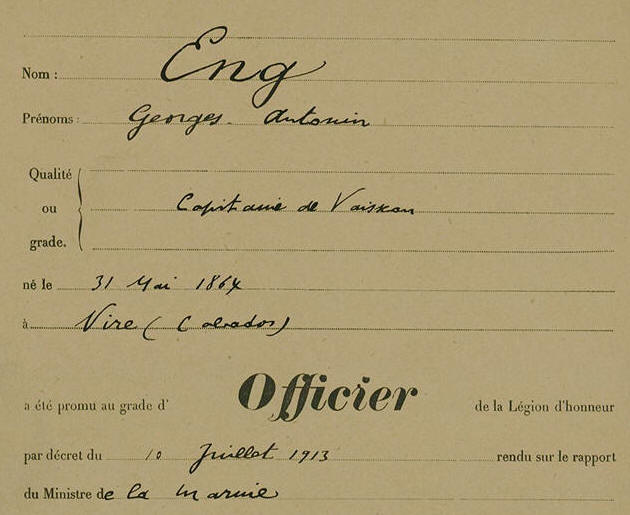 Nom : Eng
Prénoms : Georges Antonin
Qualité
ou Capitaine de Vaisseau
grade.
né le 31 Mai 1864
à Vire (Calvados)
a été promu au grade d' Officier de la Légion d'honneur
par décret du 10 Juillet 1913 rendu sur le rapport
du Ministre de la Marine